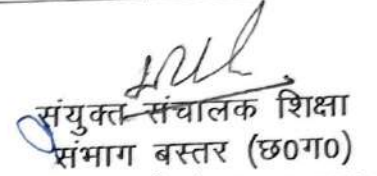 संयुक्त संचालक शिक्षा
संभाग बस्तर (छ0ग0)